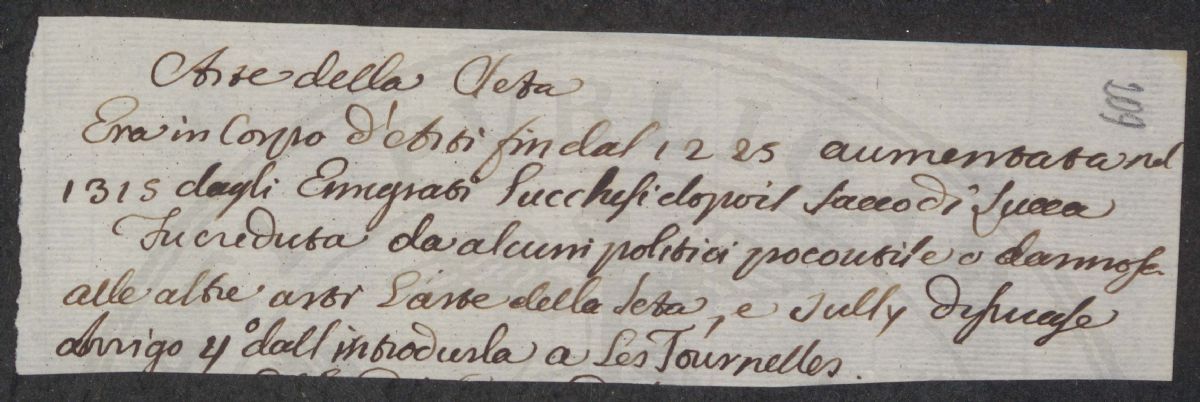 Arte della Seta
Era in Corpo d'Arti fin dal 1225 aumentata nel
1315 dagli Emigrati Lucchesi dopo il Sacco di Lucca
Fu creduta da alcuni politici poco utile e dannosa
alle altre arti l'arte della Seta, e Sully dissuase
Arrigo 4º dall introdurla a Les Tournelles.
209